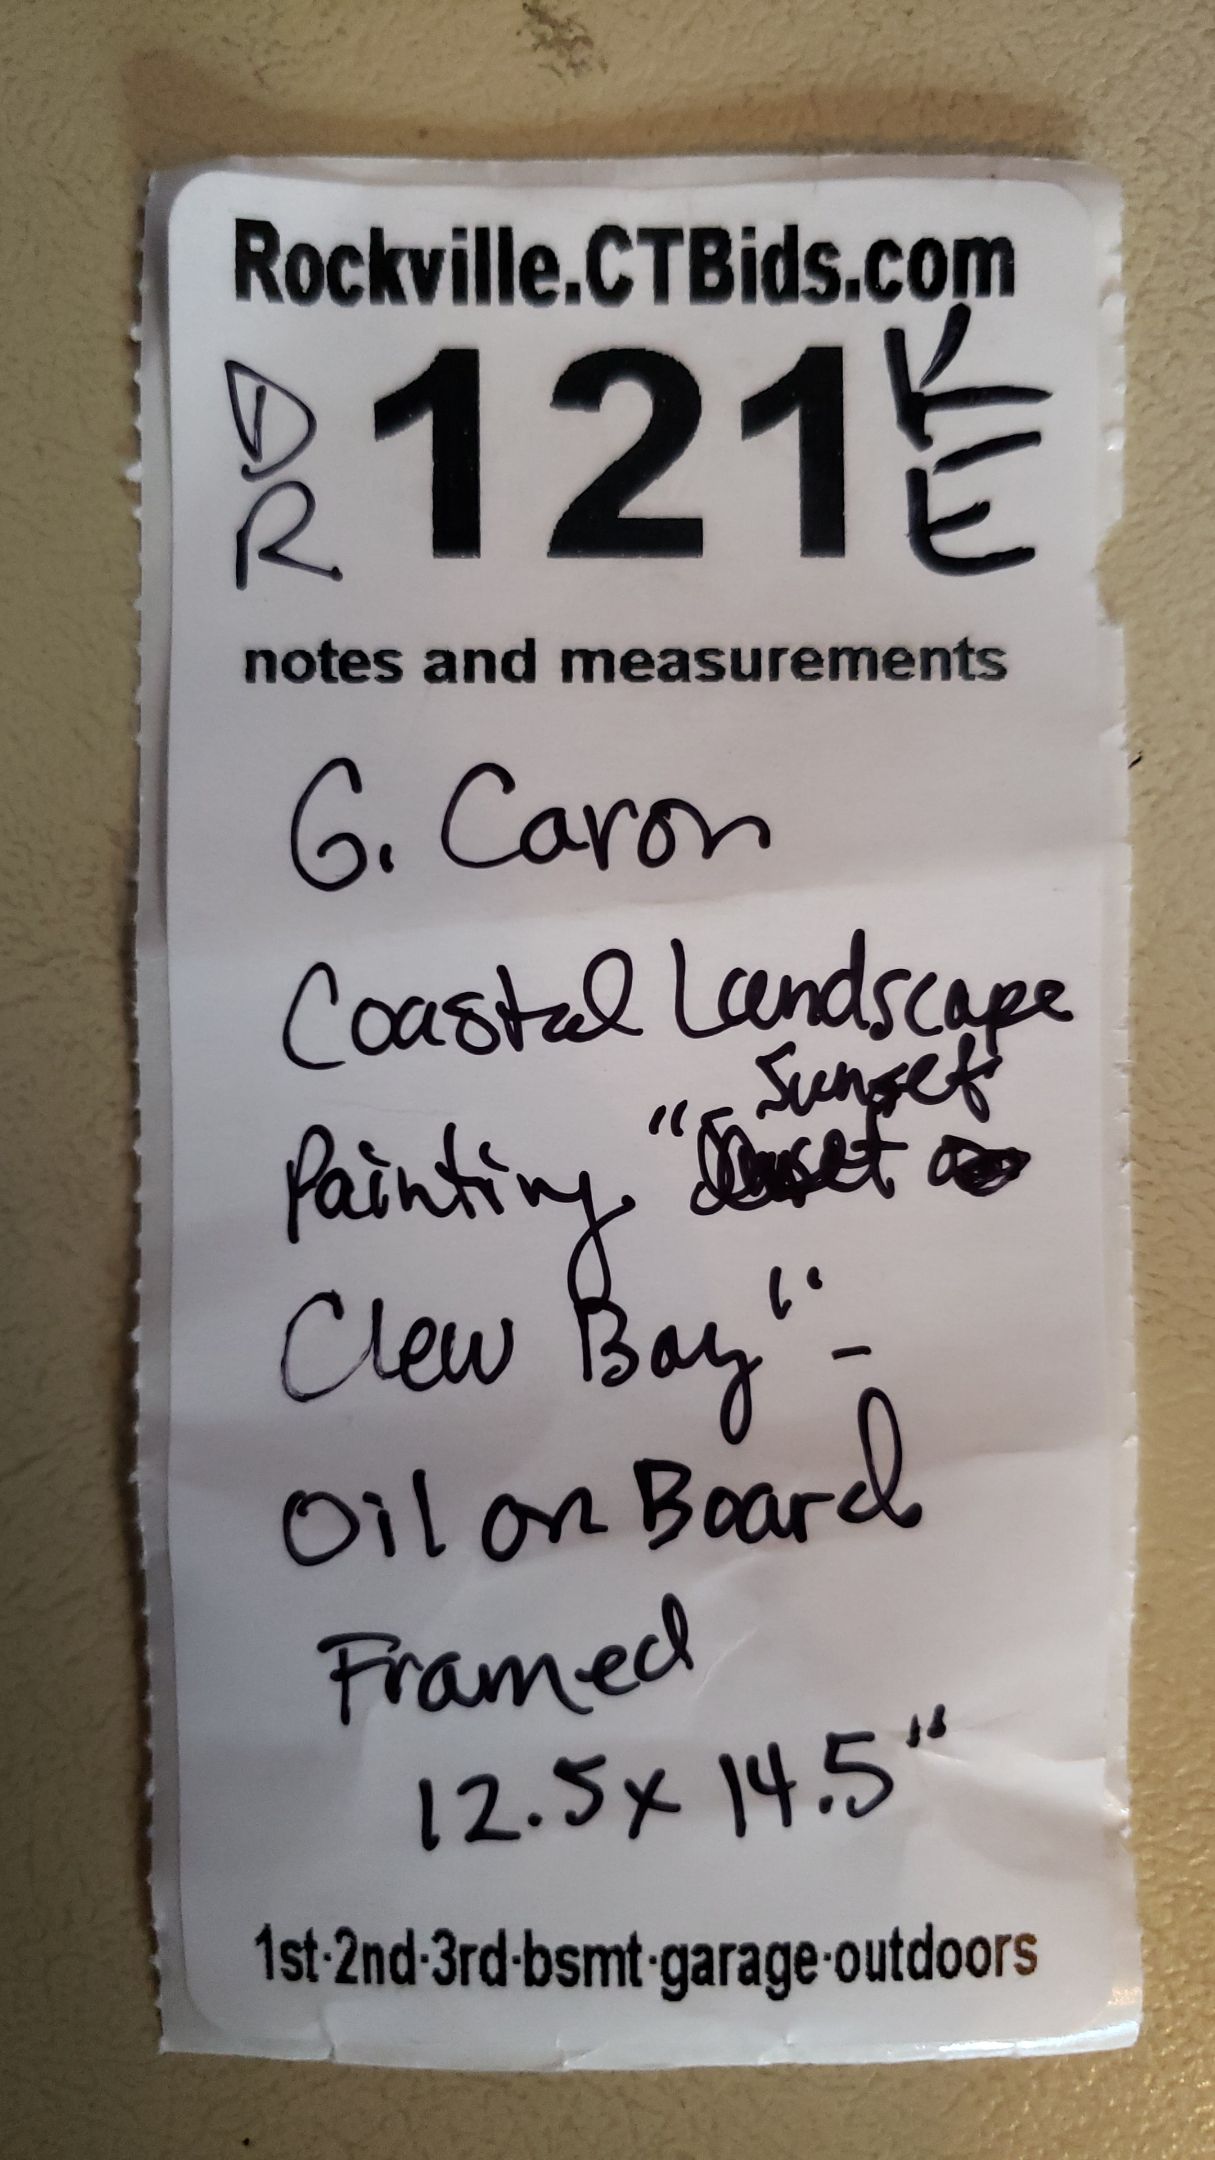 Rockville.CTBids.com
D 121 K
R E
notes and measurements
G. Caron
Coastal Landscape
Sunset
Painting "
Clew Bay" -
Oil on Board
Framed
12.5 x 14.5"
1st·2nd·3rd·bsmt·garage·outdoors